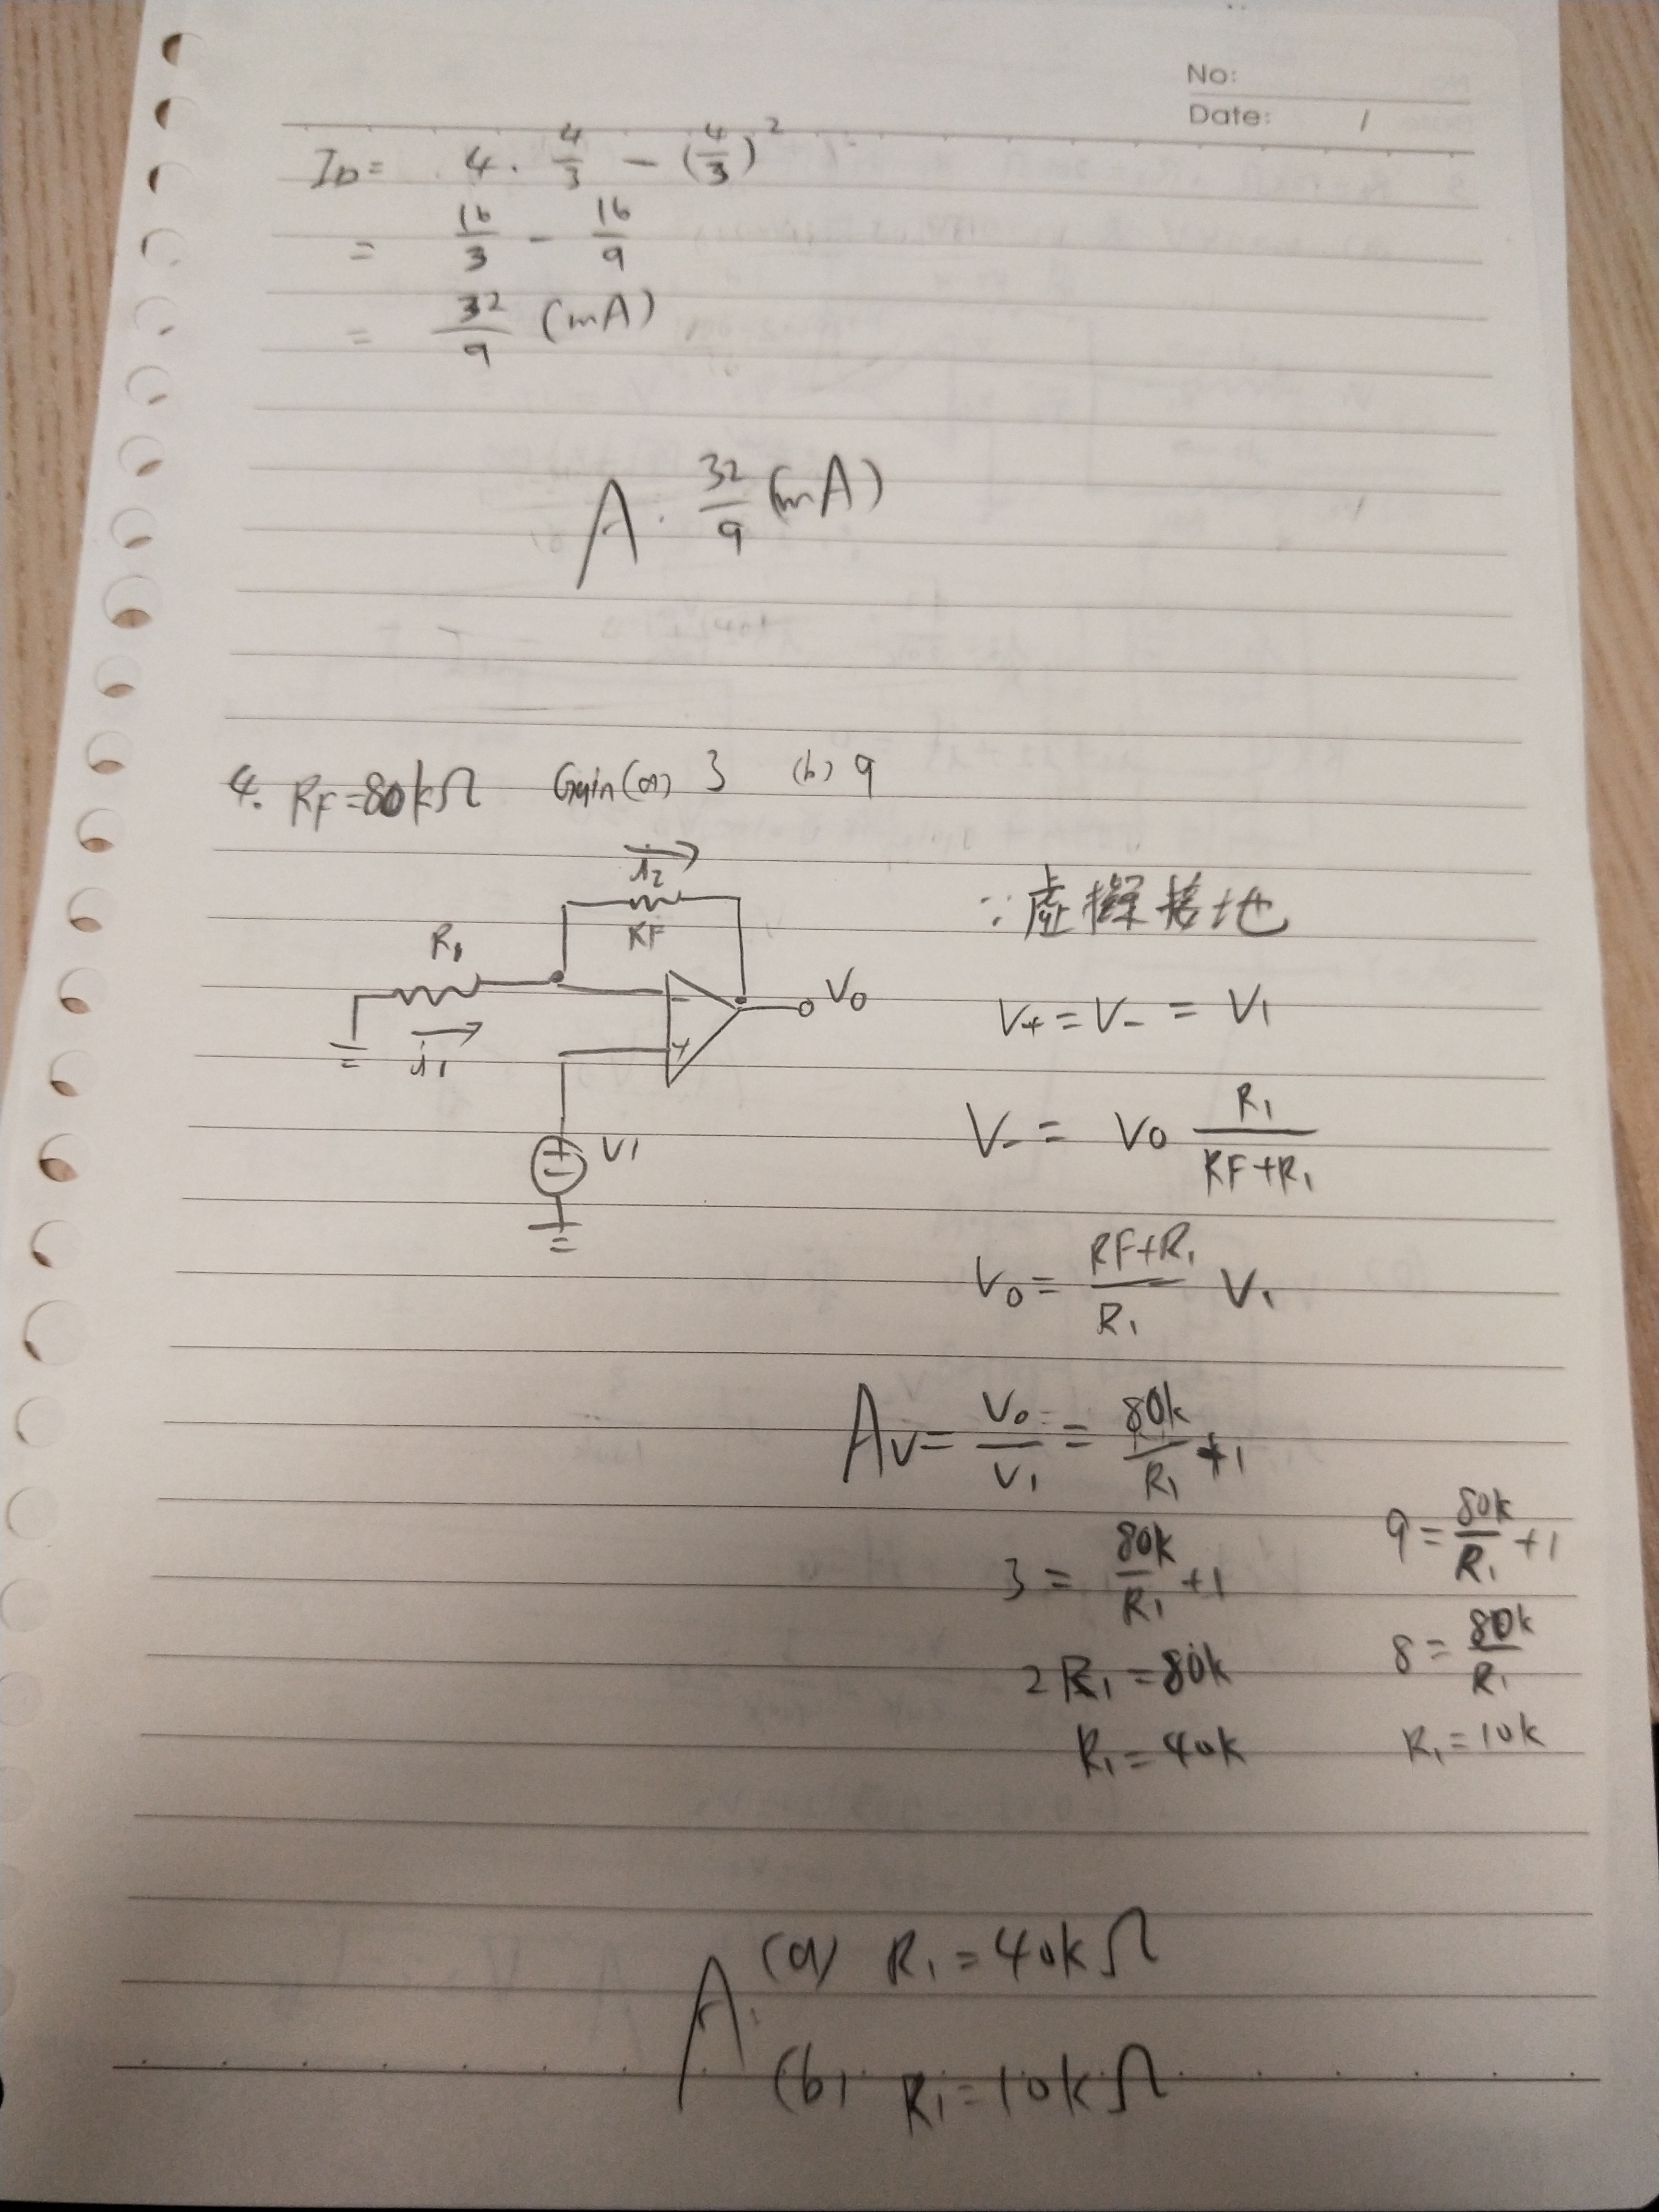 No:
Date: 1
I_D = 4 · 4/3 - (4/3)^2
= 16/3 - 16/9
= 32/9 (mA)
A. 32/9 (mA)
4. RF=80kΩ Gain(a) 3 (b) 9
i2
RF
R1
i1
- +
Vo
V1
+ -
∵虛擬接地
V+ = V- = V1
V- = Vo R1/(RF+R1)
Vo = (RF+R1)/R1 V1
Av = Vo/V1 = 80k/R1 +1
3 = 80k/R1 +1
2R1 = 80k
R1 = 40k
9 = 80k/R1 +1
8 = 80k/R1
R1 = 10k
A. (a) R1 = 40kΩ
(b) R1 = 10kΩ